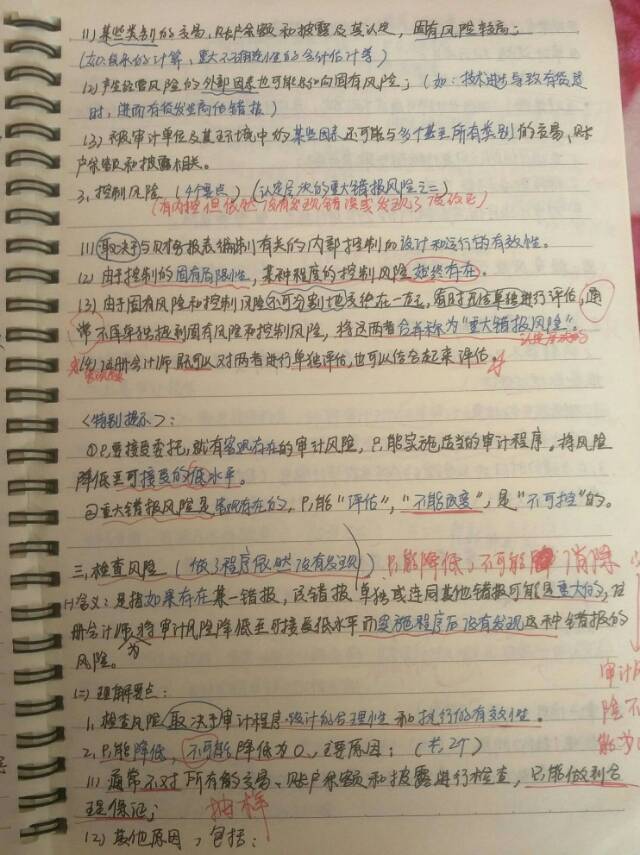 (1)某些类别的交易、账户余额和披露及其认定，固有风险较高；
(如:复杂的计算、重大不确定性的会计估计等)
(2)产生经营风险的外部因素也可能影响固有风险；(如：技术进步导致存货过
时，进而有易发生高估错报)
(3)被审计单位及其环境中的某些因素还可能与多个甚至所有类别的交易、账
户余额和披露相关。
3.控制风险（4个要点）（认定层次的重大错报风险之二）
(有内控但依然没有发现错误或发现了没改正)
(1)取决于与财务报表编制有关的内部控制的设计和运行的有效性。
(2)由于控制的固有局限性，某种程度的控制风险始终存在。
(3)由于固有风险和控制风险不可分割地交织在一起，有时无法单独进行评估，通
常不再单独提到固有风险和控制风险，将这两者合并称为“重大错报风险”。
(4)注册会计师既可以对两者进行单独评估，也可以结合起来评估。
<特别提示>：
①只要接受委托，就有客观存在的审计风险，只能实施适当的审计程序。将风险
降低至可接受的低水平。
②重大错报风险是客观存在的，只能“评估”，“不能改变”，是“不可控”的。
三.检查风险（做了程序依然没有发现）只能降低，不可能消除
(一)含义：是指如果存在某一错报，该错报单独或连同其他错报可能是重大的，注
册会计师为将审计风险降低至可接受低水平而实施程序后没有发现这种错报的
风险。
审计风
险不
能为
(二)理解要点：
1.检查风险取决于审计程序设计的合理性和执行的有效性。
2.只能降低，不可能降低为0，主要原因：（共2个）
(1)通常不对所有的交易、账户余额和披露进行检查，只能做到合
理保证；抽样
(2)其他原因，包括：